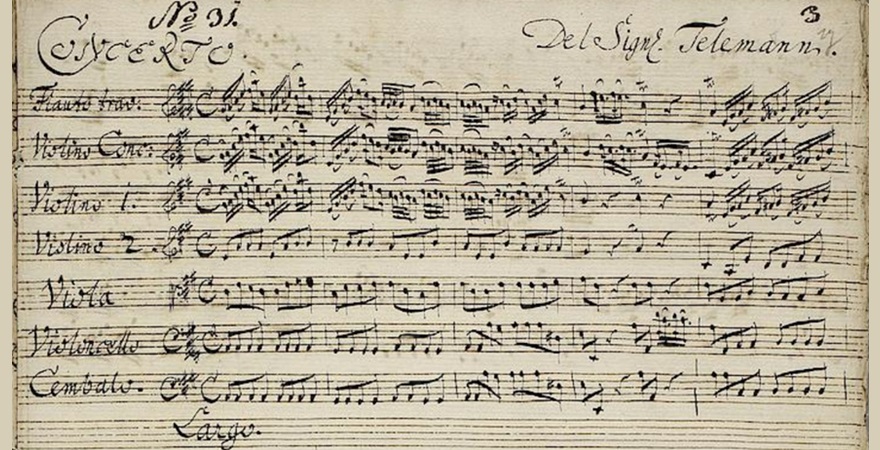 No 31.
3
CONCERTO.
Del Sigr. Telemann.
Flauto trav:
Violino Conc:
Violino 1.
Violino 2.
Viola
Violoncello
Cembalo.
Largo.